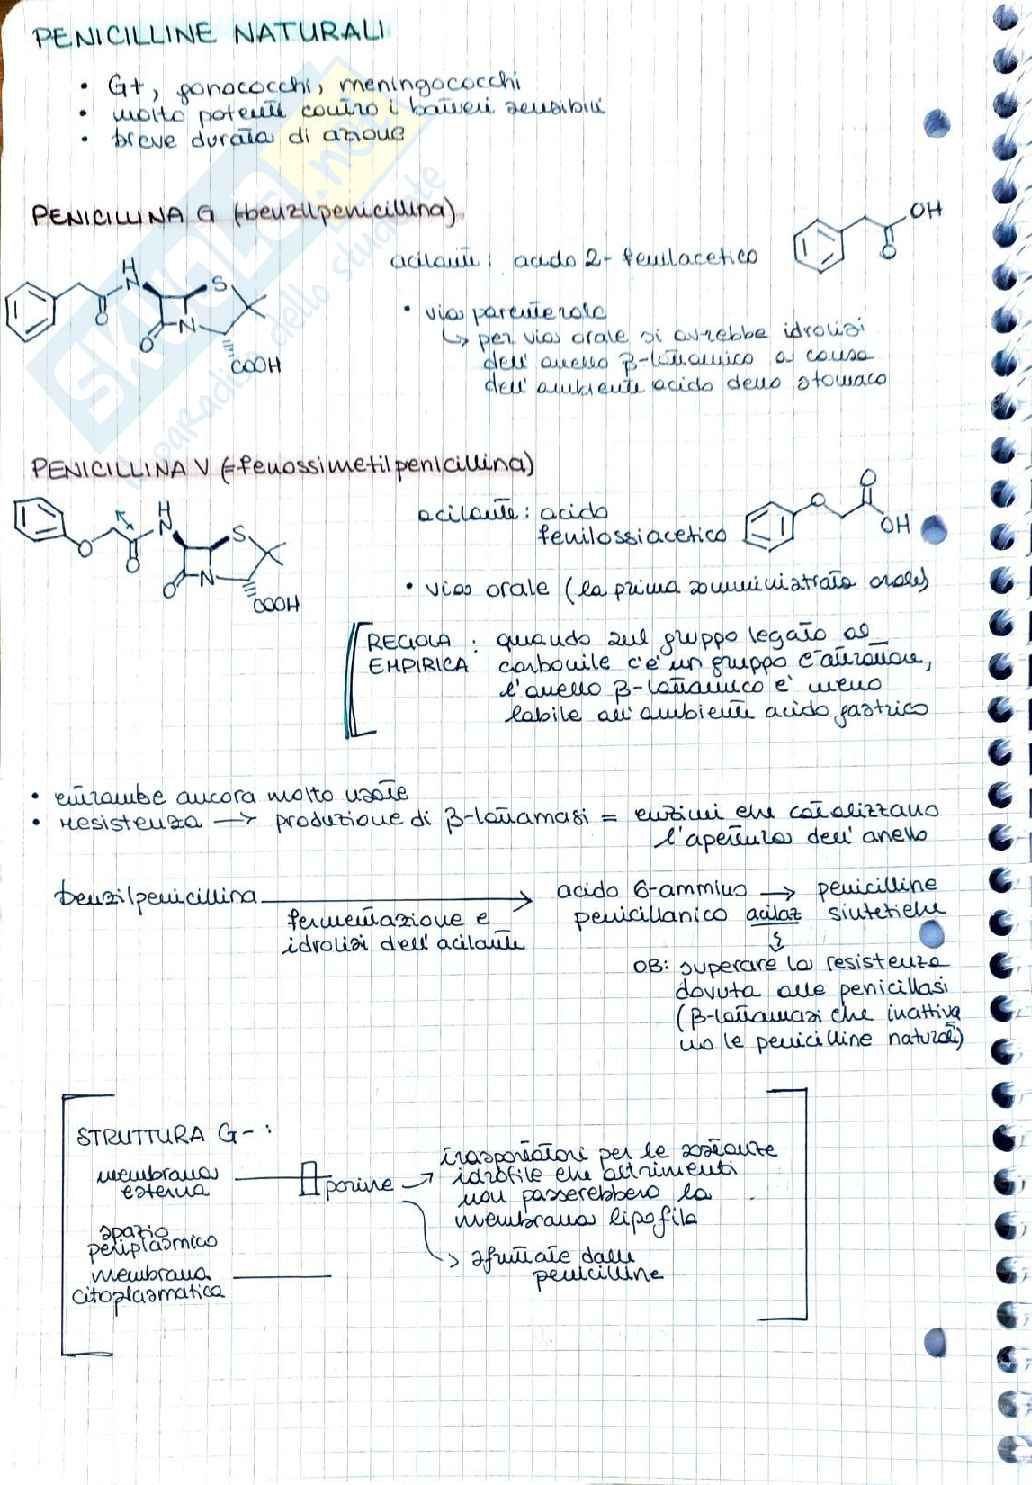 PENICILLINE NATURALI
• G+, gonococchi, meningococchi
• molto potenti contro i batteri sensibili
• breve durata di azione
PENICILLINA G (=benzilpenicillina)
acilante: acido 2-fenilacetico
OH
O
H
N
S
O
O
N
COOH
• via parenterale
↳ per via orale si avrebbe idrolisi
dell'anello β-lattamico a causa
dell'ambiente acido dello stomaco
PENICILLINA V (=fenossimetilpenicillina)
H
N
S
O
O
O
N
COOH
acilante: acido
fenilossiacetico
O
O
OH
• via orale (la prima somministrata orale)
REGOLA : quando sul gruppo legato al
EMPIRICA carbonile c'è un gruppo e-attrattore,
l'anello β-lattamico è meno
labile all'ambiente acido gastrico
• entrambe ancora molto usate
• resistenza → produzione di β-lattamasi = enzimi che catalizzano
l'apertura dell'anello
benzilpenicillina → acido 6-ammino → penicilline
fermentazione e penicillanico acilaz sintetiche
idrolisi dell'acilante
OB: superare la resistenza
dovuta alle penicillasi
(β-lattamasi che inattiva
no le penicilline naturali)
STRUTTURA G-:
membrana
esterna
porine → trasportatori per le sostanze
idrofile che altrimenti
non passerebbero la
membrana lipofila
spazio
periplasmico
→ sfruttate dalle
penicilline
membrana
citoplasmatica
SKUOLA.net
il paradiso dello studente